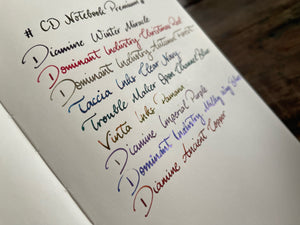 # CD Notebook Premium
Diamine Winter Miracle
Dominant Industry Christmas Red
Dominant Industry Autumn Forest
Taccia Inks Clear Navy
Trouble Maker Open Channel Blue
Vinta Inks
Diamine Imperial Purple
Dominant Industry Milky Way Silver
Diamine Ancient Copper